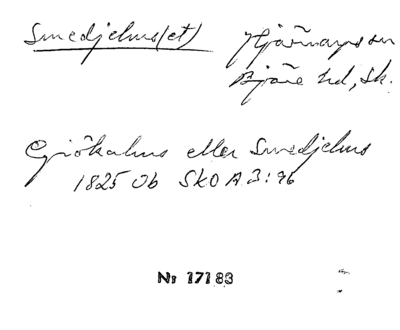 Smedjehus(et) Hjärnarps sn
Bjäre hd, Sk.
Gjökahus eller Smedjehus
1825 Ob SkO A 3:96
No 17183